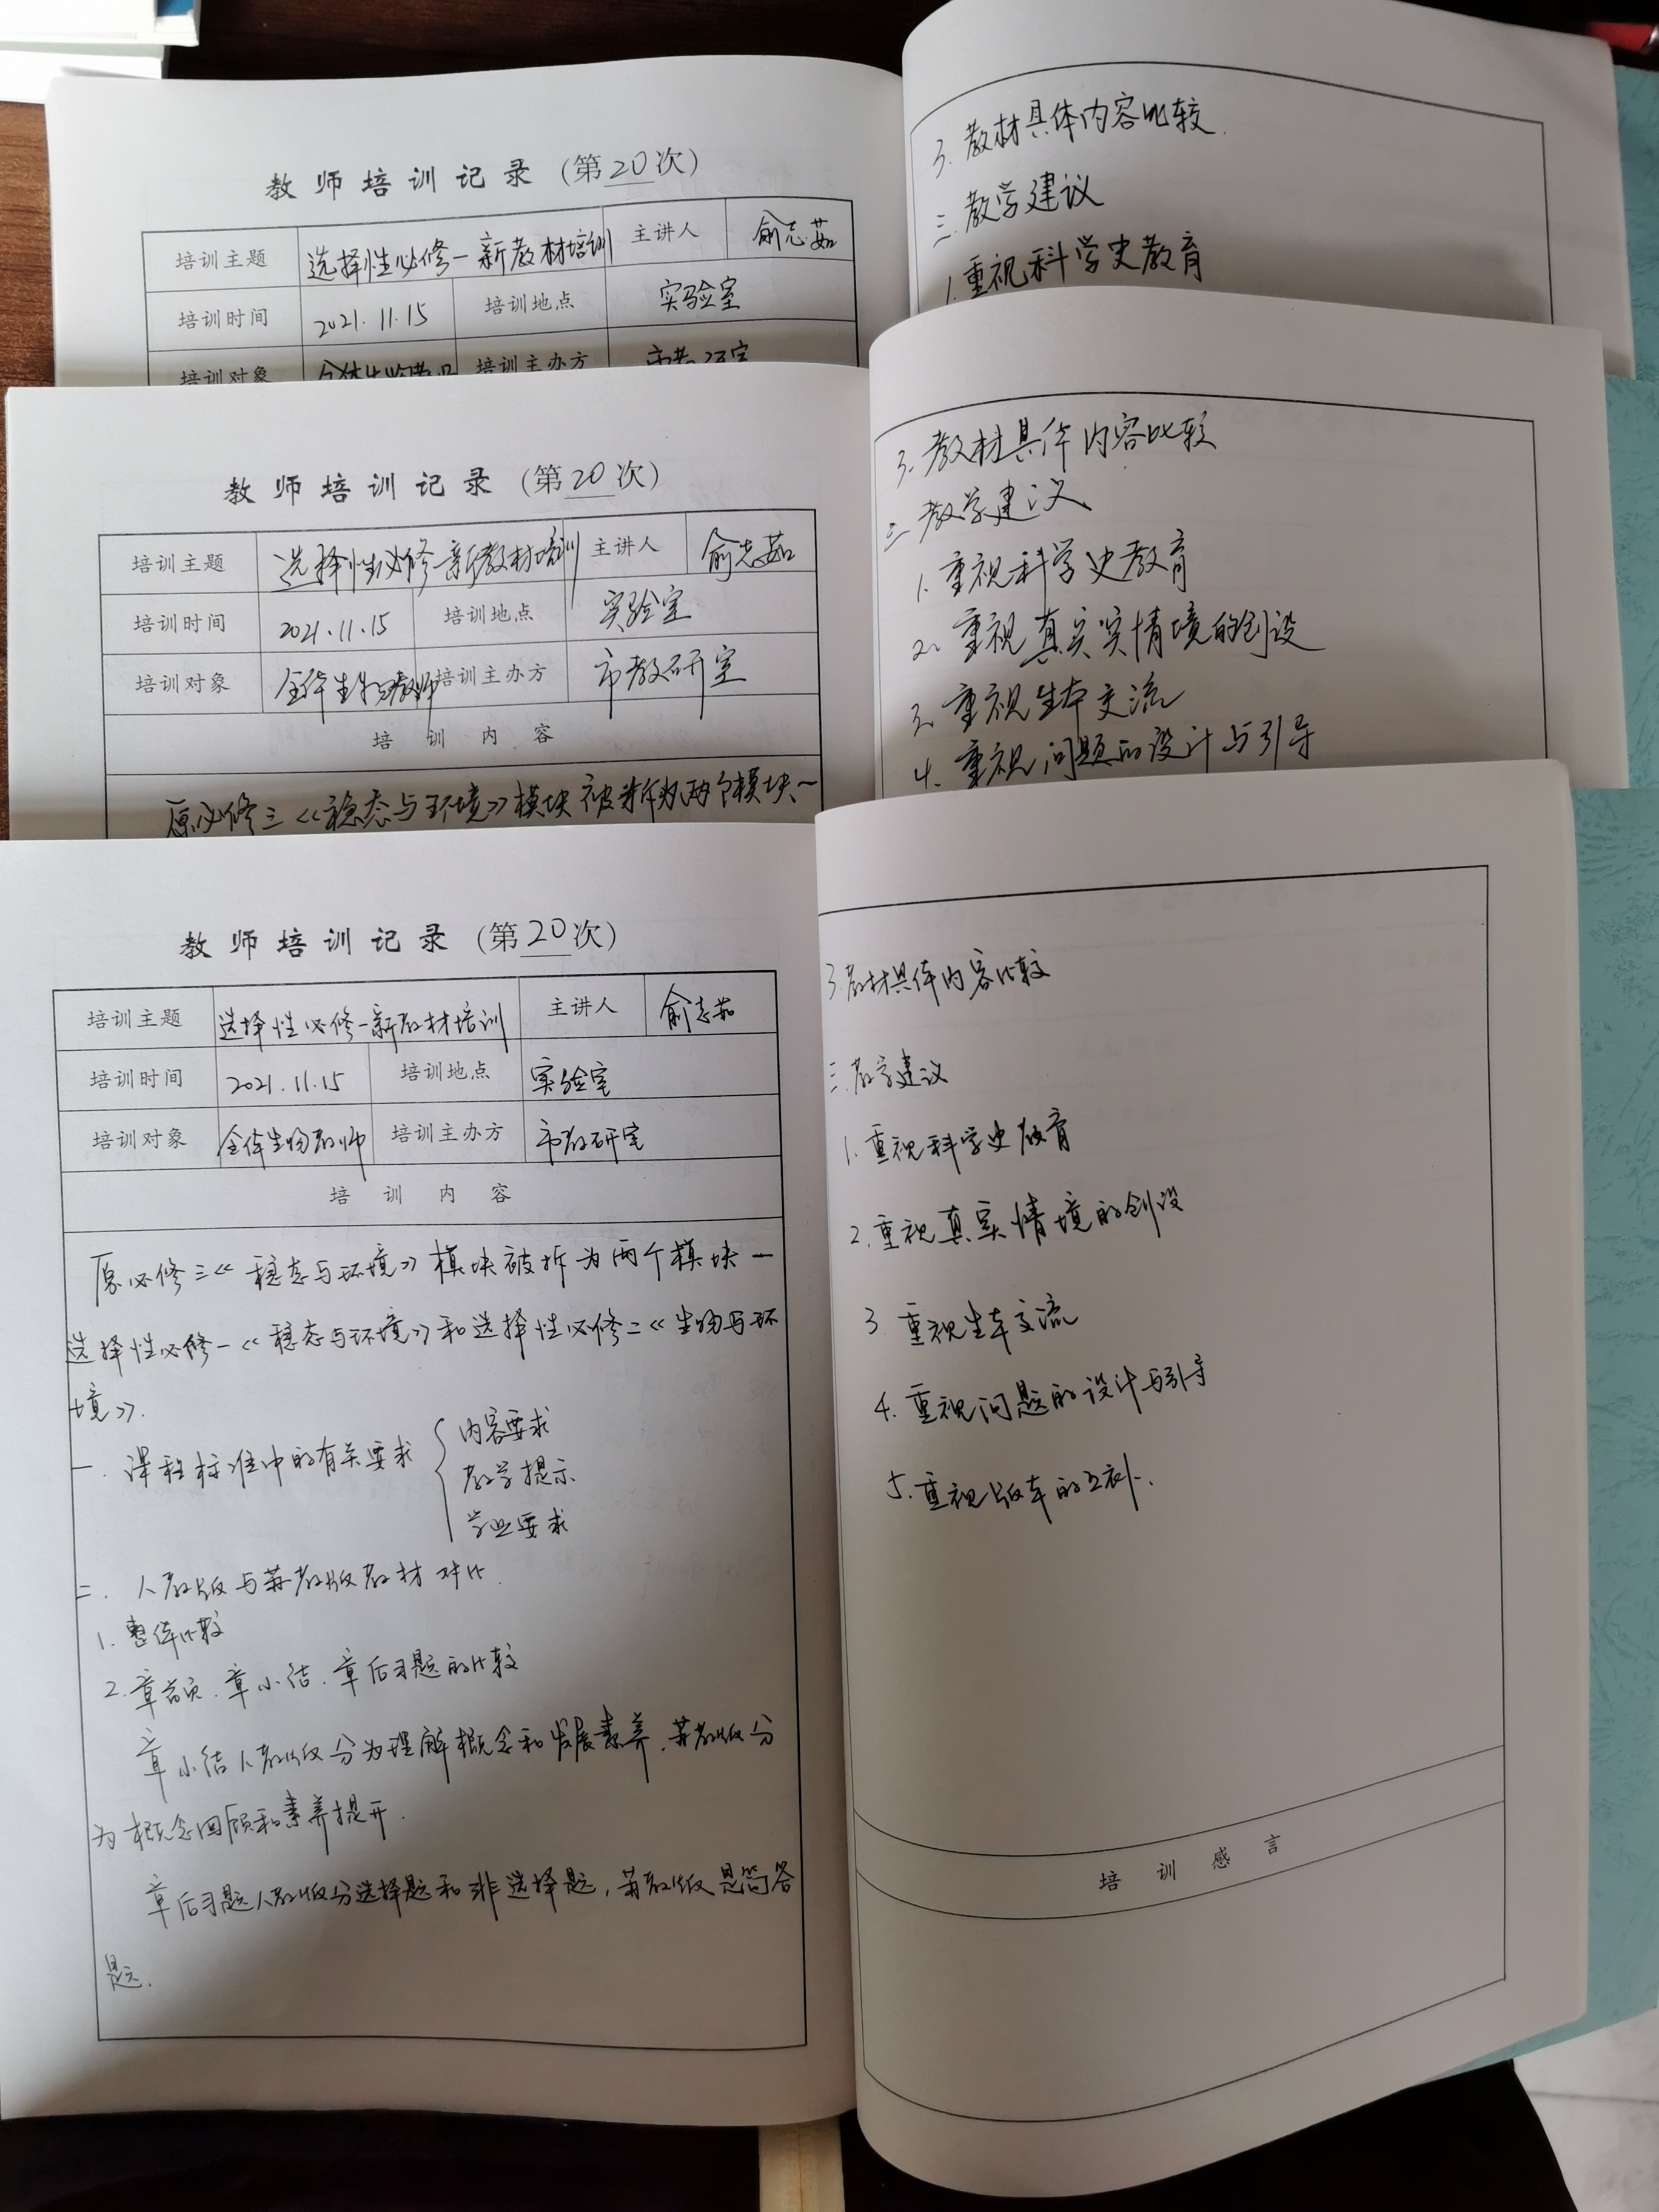 教师培训记录（第20次）
培训主题 选择性必修一新教材培训 主讲人 俞志茹
培训时间 2021.11.15 培训地点 实验室
培训对象 全体生物教师 培训主办方 市教研室
3. 教材具体内容比较.
三. 教学建议
1. 重视科学史教育
教师培训记录（第20次）
培训主题 选择性必修一新教材培训 主讲人 俞志茹
培训时间 2021.11.15 培训地点 实验室
培训对象 全体生物教师 培训主办方 市教研室
培训内容
原必修三《稳态与环境》模块被拆为两个模块一
3. 教材具体内容比较
三 教学建议
1. 重视科学史教育
2. 重视真实实情境的创设
3. 重视生本交流
4. 重视问题的设计与引导
教师培训记录（第20次）
培训主题 选择性必修一新教材培训 主讲人 俞志茹
培训时间 2021.11.15 培训地点 实验室
培训对象 全体生物教师 培训主办方 市教研室
培训内容
原必修三《稳态与环境》模块被拆为两个模块一
选择性必修一《稳态与环境》和选择性必修二《生物与环
境》.
一. 课程标准中的有关要求 { 内容要求
教学提示
学业要求
二. 人教版与苏教版教材对比.
1. 整体比较
2. 章首页. 章小结. 章后习题的比较
章小结人教版分为理解概念和发展素养. 苏教版分
为概念回顾和素养提升.
章后习题人教版分选择题和非选择题, 苏教版是简答
题.
3. 教材具体内容比较
三. 教学建议
1. 重视科学史教育
2. 重视真实情境的创设
3. 重视生本交流
4. 重视问题的设计与引导
5. 重视版本的互补.
培训感言